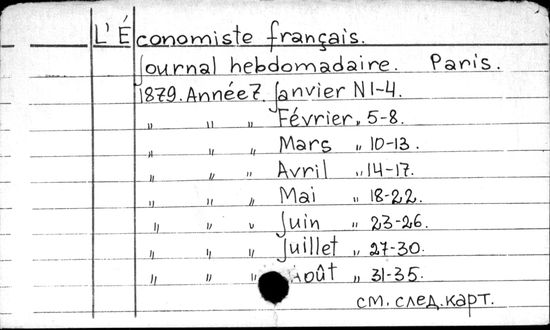 L'Économiste français.
Journal hebdomadaire. Paris.
1879. Année 7. Janvier N 1-4.
" " " Février " 5-8.
" " " Mars " 10-13.
" " " Avril " 14-17.
" " " Mai " 18-22.
" " " Juin " 23-26.
" " " Juillet " 27-30.
" " " Août " 31-35.
см. след. карт.